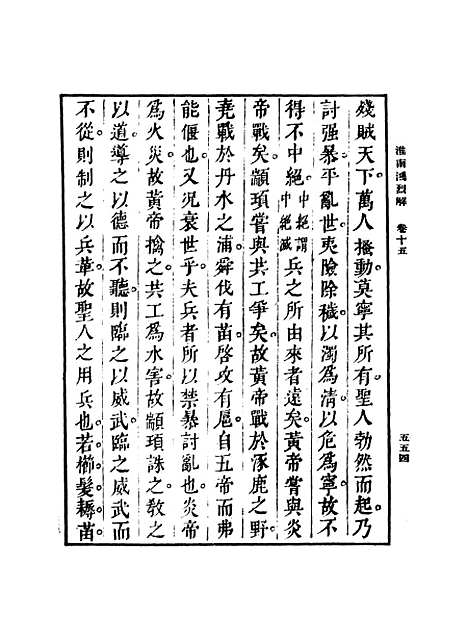 淮南鴻烈解　卷十五　五五四
殘賊天下。萬人搔動。莫寧其所有。聖人勃然而起。乃
討强暴。平亂世。夷險除穢。以濁爲清。以危爲寧。故不
得不中絕。中絕謂中絕滅兵之所由來者遠矣。黃帝嘗與炎
帝戰矣。顓頊嘗與共工爭矣。故黃帝戰於涿鹿之野。
堯戰於丹水之浦。舜伐有苗。啓攻有扈。自五帝而弗
能偃也。又況衰世乎。夫兵者所以禁暴討亂也。炎帝
爲火災。故黃帝擒之。共工爲水害。故顓頊誅之。教之
以道。導之以德。而不聽。則臨之以威武。臨之威武而
不從。則制之以兵革。故聖人之用兵也。若櫛髮耨苗。